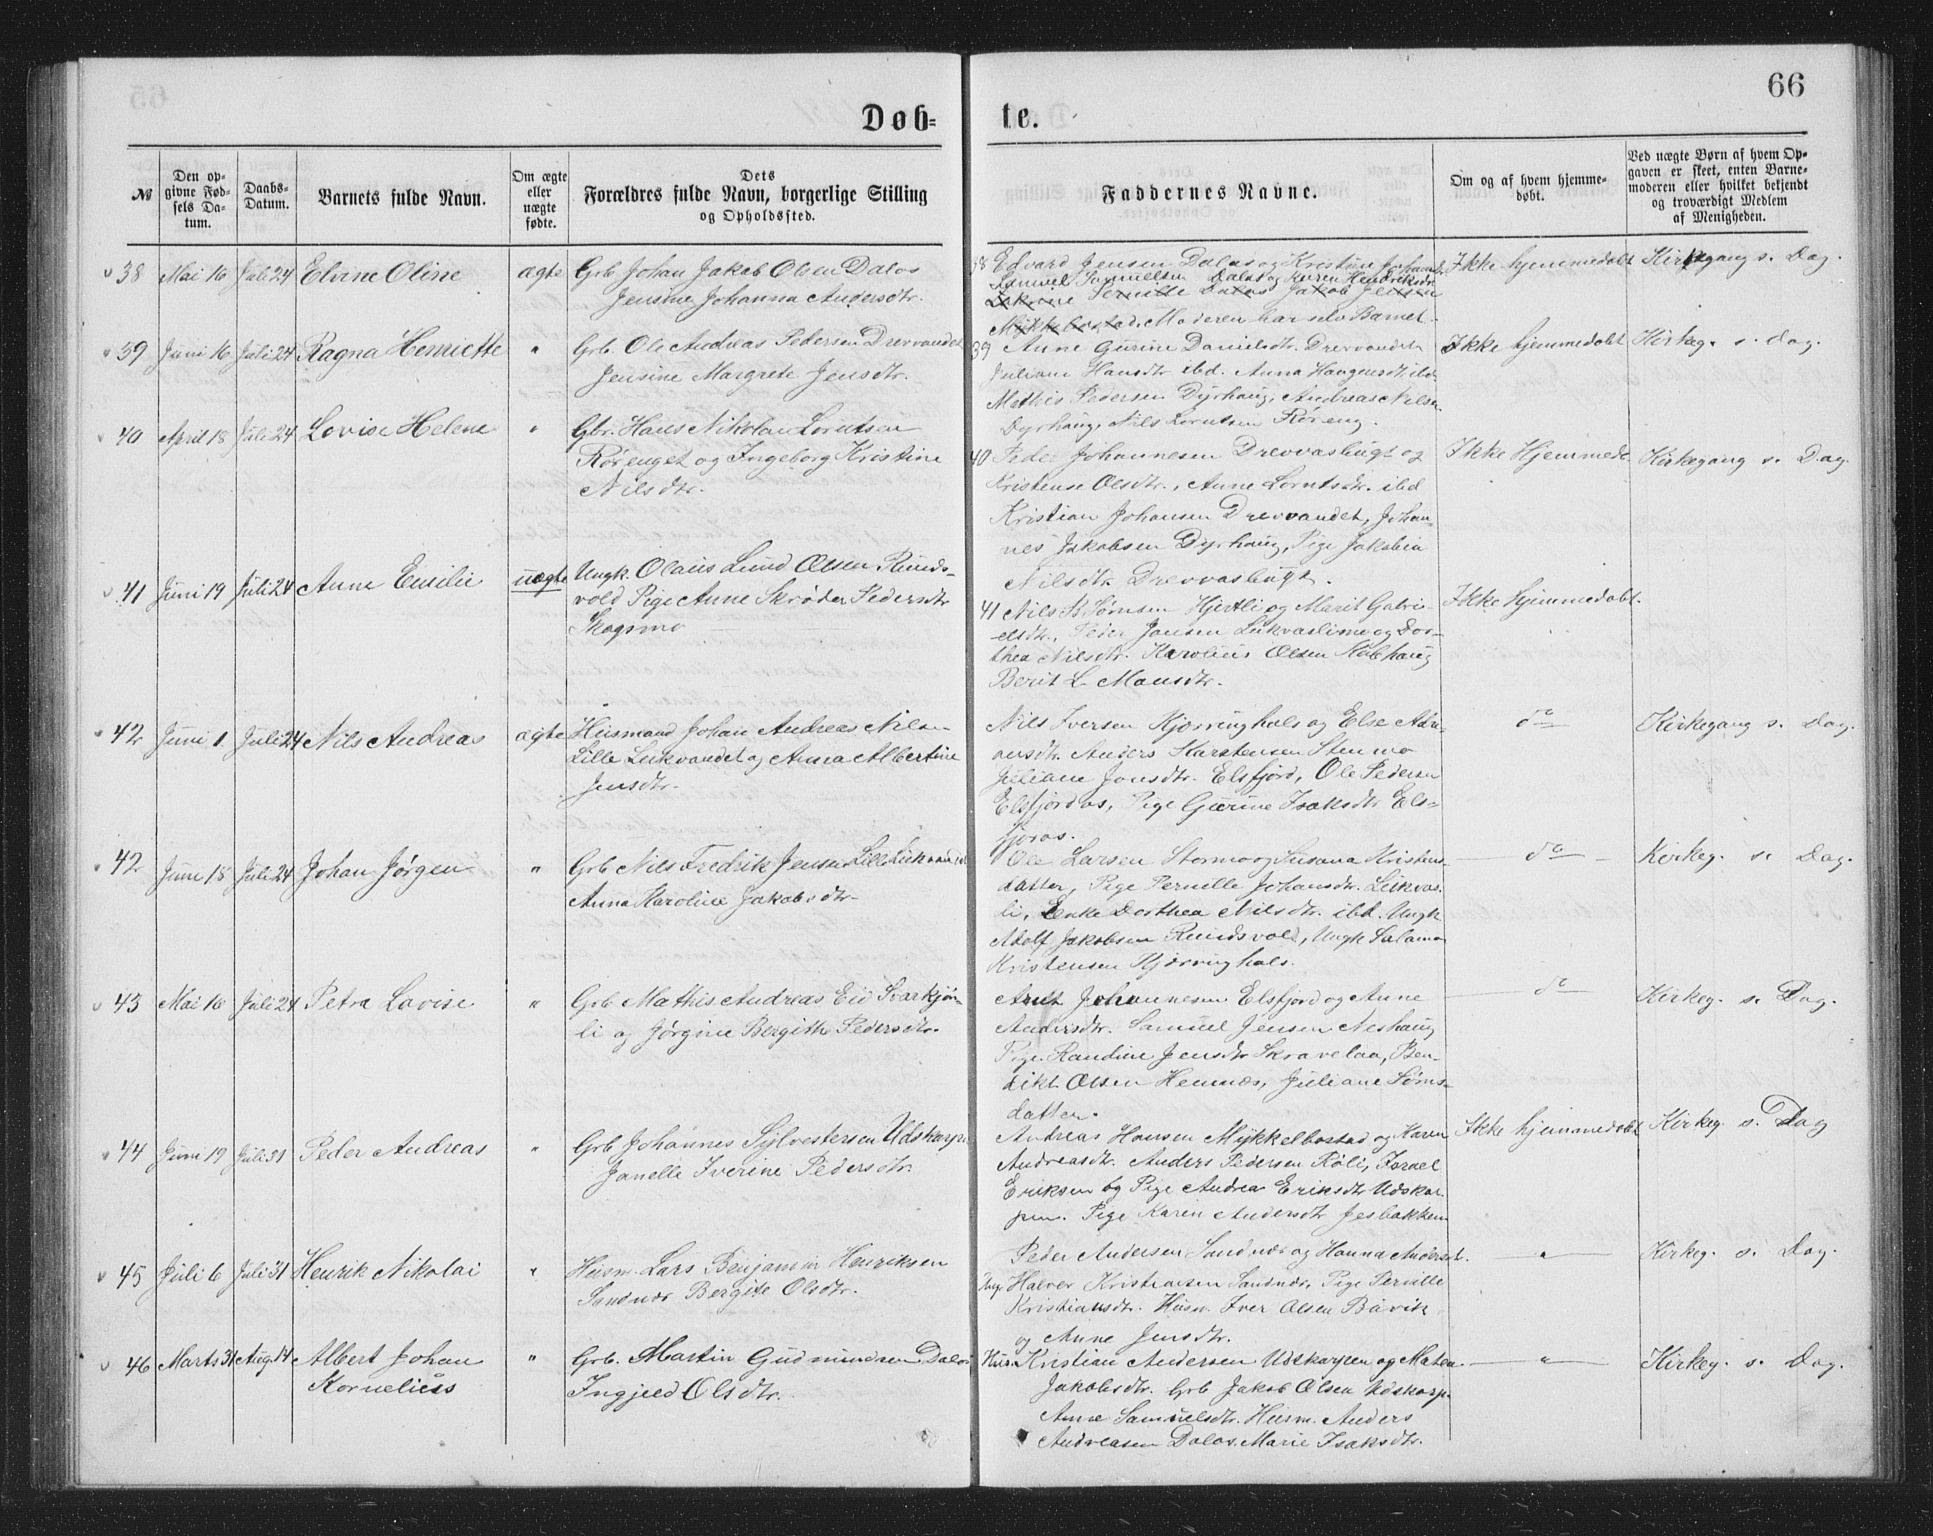 66
Døb-
te.
№
Den op-
givne Fød-
sels Da-
tum.
Daabs-
Datum.
Barnets fulde Navn.
Om ægte
eller
uægte
fødte.
Dets
Forældres fulde Navn, borgerlige Stilling
og Opholdssted.
Faddernes Navne.
Om og af hvem hjemme-
døbt.
Ved uægte Børn af hvem Op-
gaven er skeet, enten Barne-
moderen eller hvilket bekjendt
og troværdigt Medlem
af Menigheden.
38 Mai 16 Juli 24 Elvine Oline ægte Grb Johan Jakob Olsen Dalos
Jensine Johanna Andersdtr.
38 Edvard Jensen Dalos og Kristine Johansd. Ikke hjemmedøbt Kirkegang s. Dag.
Samuel Samuelsen Dalos og Karen Hendriksdtr
Pernille Dalos Jakob Jensen
Mykkelbostad. Moderen bar selv Barnet.
39 Juni 16 Juli 24 Ragna Henriette " Grb. Ole Andreas Pedersen Drevvandet
Jensine Margrete Jensdtr.
39 Anne Gurine Danielsdtr. Drevvandet Ikke hjemmedøbt Kirkeg. s. dag.
Juliane Hansdtr ibd. Anna Haagensdt. ibd.
Mathis Pedersen Dyrhaug, Andreas Nilsen
Dyrhaug, Nils Lorntsen Røreng.
40 April 18 Juli 24 Lovise Helene " Gbr. Hans Nikolai Lorntsen
Rørenget og Ingeborg Kristine
Nilsdtr.
40 Peder Johannesen Drevvasbugt og Ikke Hjemmedø. Kirkegang s. Dag.
Kristense Olsdtr., Anne Lorntsdtr. ibd
Kristian Johansen Drevvandet, Johan-
nes Jakobsen Dyrhaug, Pige Jakobia
Nilsdtr Drevvasbugt.
41 Juni 19 Juli 24 Anne Emilie uægte Ungk. Olaus Lund Olsen Runds-
vold Pige Anne Skrøder Pedersdtr
Skogsmo
41 Nils B Sømsen Hjertli og Marit Gabri- Ikke hjemmedøbt.
elsdtr., Peder Jansen Lukvaslimo og Dor-
thea Nilsdtr. Karolius Olsen Kobhaug
Berit L. Mansdtr.
42 Juni 1. Juli 24 Nils Andreas ægte Husmand Johan Andreas Nilsen
Lille Lukvandet og Anna Albertine
Jensdtr.
Nils Iversen Kjærringhals og Else Adri- do Kirkegang s. Dag.
ansdtr. Anders Karstensen Stenmo
Juliane Jonsdtr. Elsfjord, Ole Pedersen
Elsfjordos, Pige Gurine Isaksdtr Els-
fjoros.
42 Juni 18 Juli 24 Johan Jørgen " Grb Nils Fredrik Jensen Lille Lukvandet
Anna Karoline Jakobsdtr.
Ole Larsen Stormo og Susana Kristens- do Kirkeg. s. Dag.
datter, Pige Pernille Johansdtr. Lukvas-
li, Enke Dorthea Nilsdtr. ibd. Ungk
Adolf Jakobsen Rundsvold, Ungk Salamon
Kristensen Kjærringhals.
43 Mai 16 Juli 24 Petra Lovise " Grb Mathis Andreas Eid Svartjøn-
li og Jørgine Bergithe Pedersdtr.
Arnt Johannesen Elsfjord og Anne do Kirkeg. s. Dag.
Andersdtr. Samuel Jensen Neshaug
Pige. Randine Jensdtr Skravelaa, Ben-
dikt Olsen Hemnæs, Juliane Søms-
datter.
44 Juni 19 Juli 31 Peder Andreas " Grb Johannes Sylvestersen Udskarpen
Janelle Iverine Pedersdtr.
Andreas Hansen Mykkelbostad og Karen Ikke hjemmedøbt Kirkeg. s. Dag
Andreasdtr. Anders Pedersen Røli, Israel
Eriksen og Pige Andrea Eriksdtr Udskar-
pen. Pige Karen Andersdtr Jesbakken
45 Juli 6 Juli 31 Henrik Nikolai " Husm. Lars Benjamin Henriksen
Sandnæs Bergite Olsdtr.
Peder Andersen Sandnæs og Hanna Andersdt. " Kirkeg. s. Dag.
Ungk Halver Kristiansen Sandnæs, Pige Pernille
Kristiansdtr. Husm. Iver Olsen Bavik
og Anne Jensdtr.
46 Marts 31 Aug. 14 Albert Johan " Grb. Martin Gudmundsen Dalos
Kornelius Ingjeed Olsdtr.
Husm Kristian Andersen Udskarpen og Maten " Kirkeg. s. Dag.
Jakobsdtr. Grb Jakob Olsen Udskarp.
Anne Samuelsdtr. Husm. Anders
Andreasen Dalos. Marie Isaksdtr.